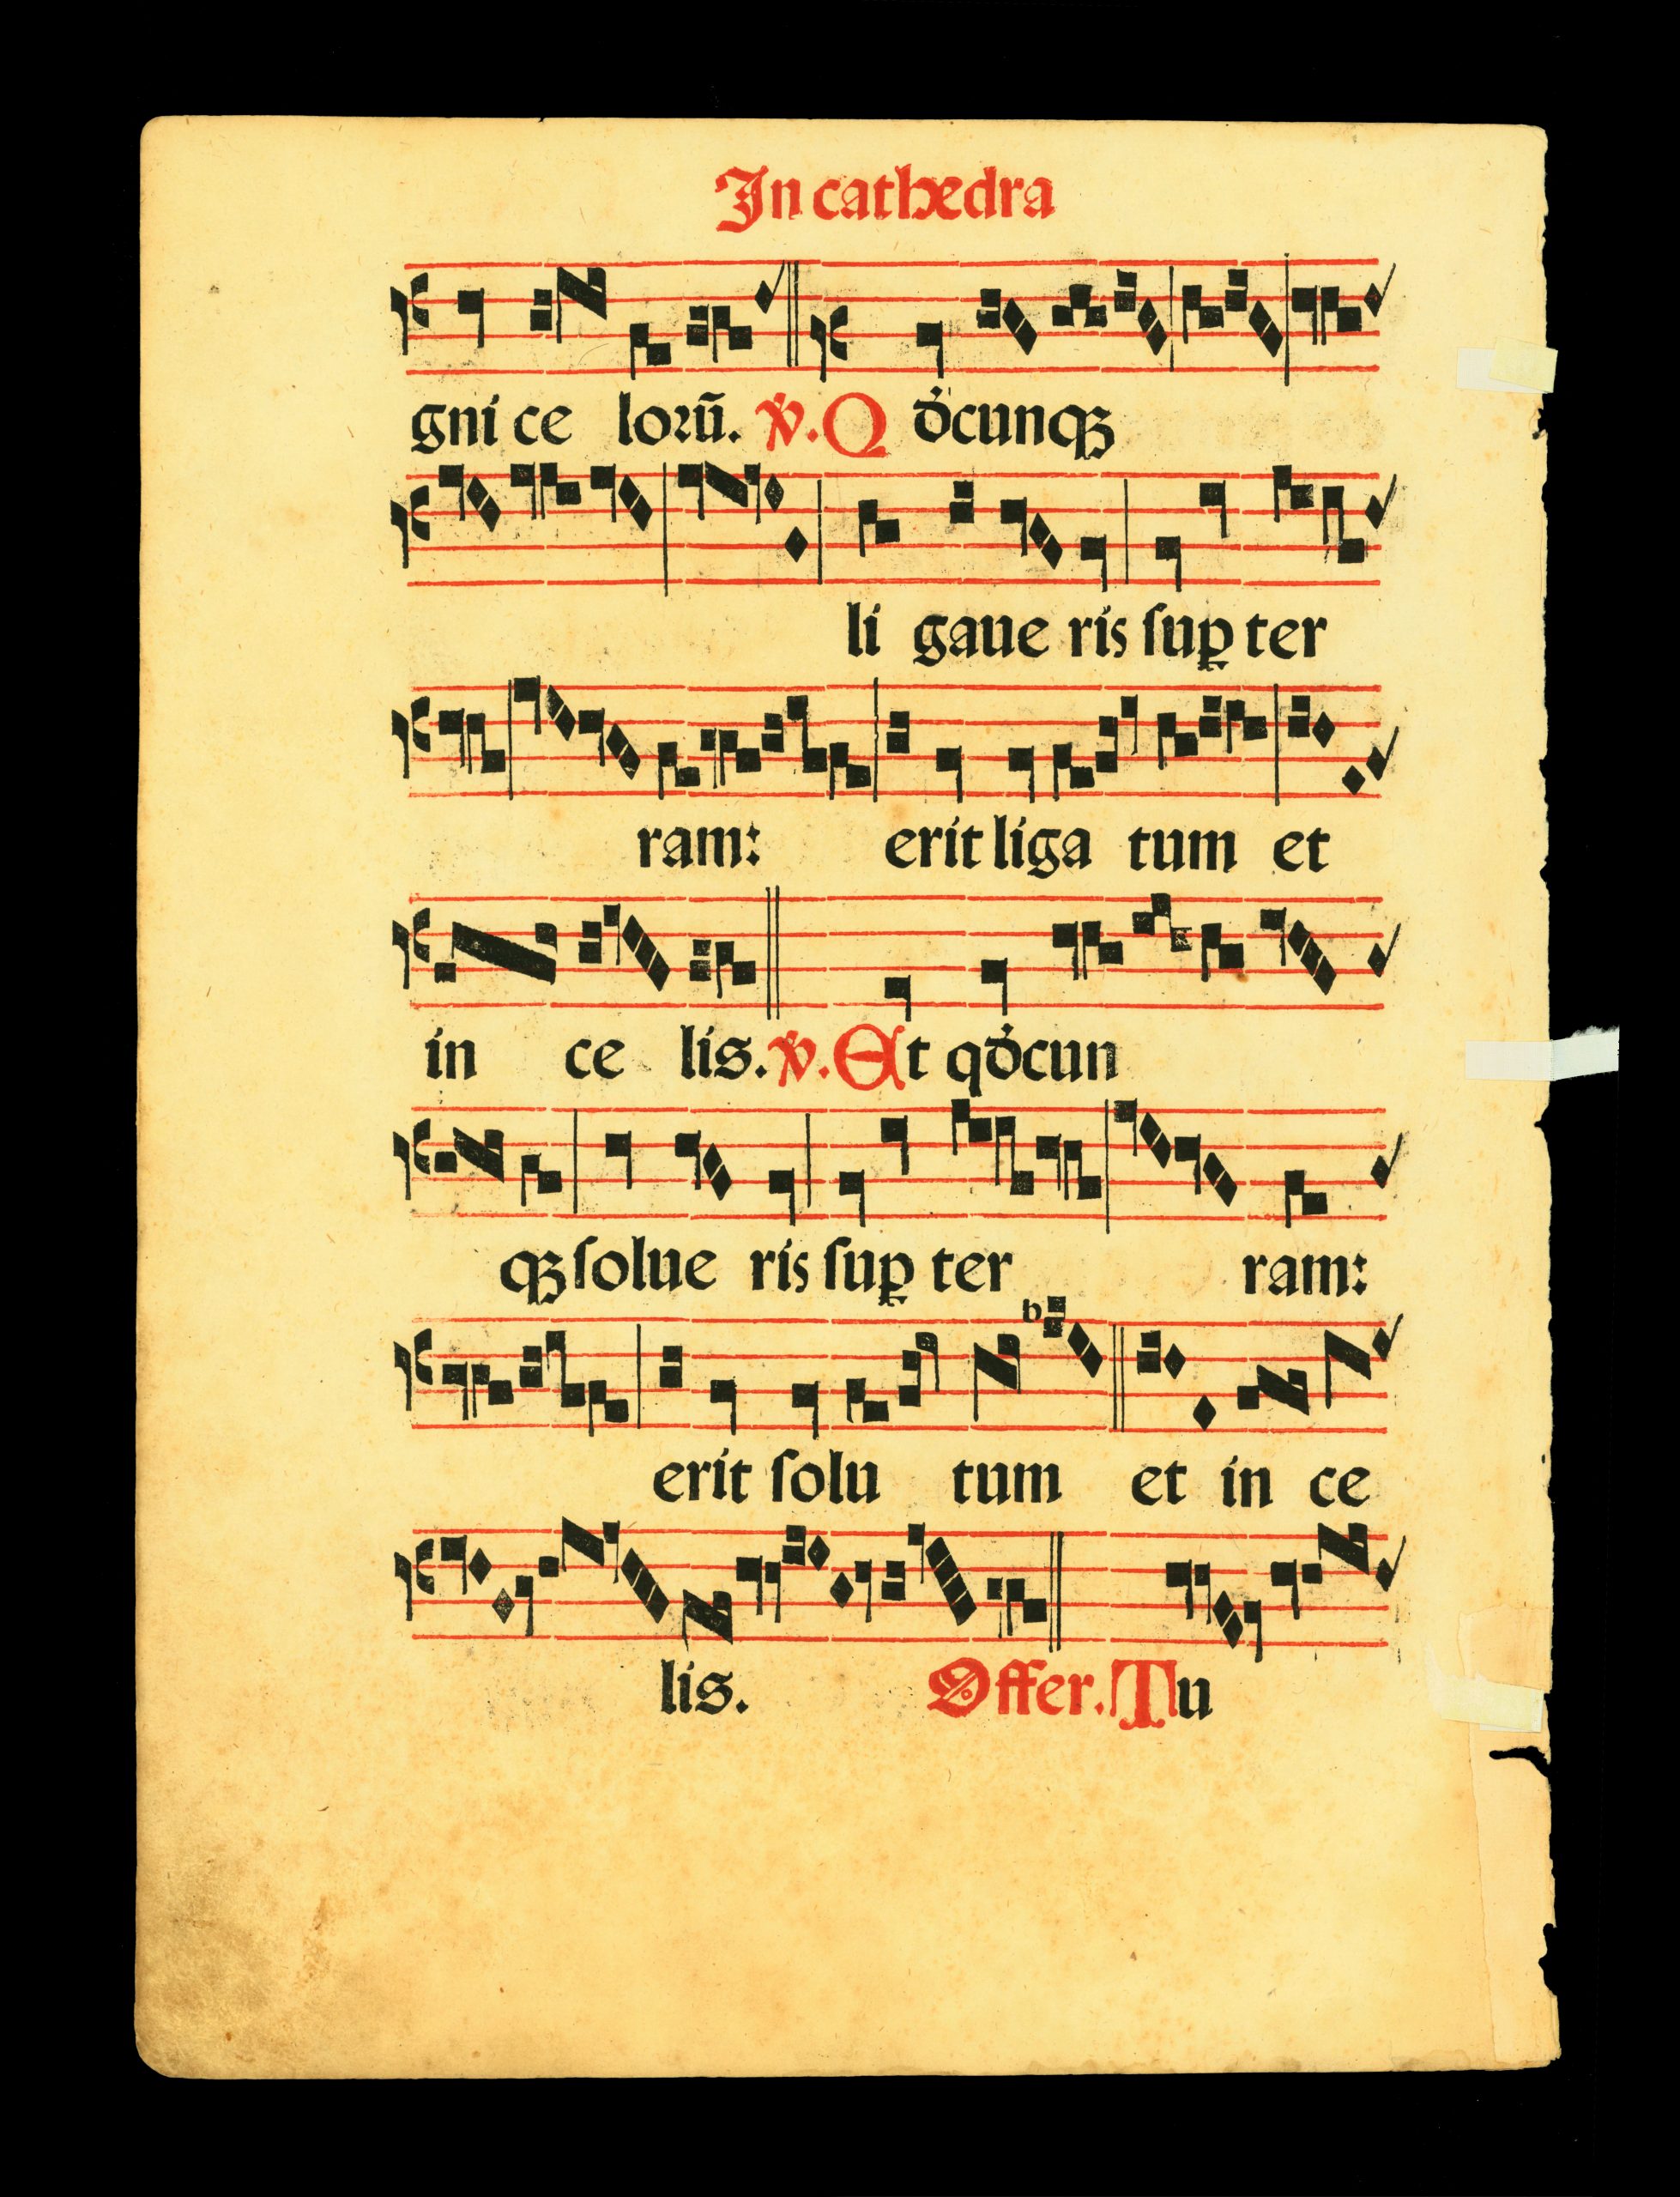 In cathedra
gni ce loꝛũ. ℣. Q ďcunqꝫ
li gaue ris ſuꝑ ter
ram: erit liga tum et
in ce lis. ℣. Et qďcun
qꝫ ſolue ris ſuꝑ ter ram:
erit ſolu tum et in ce
lis. Offer. Tu